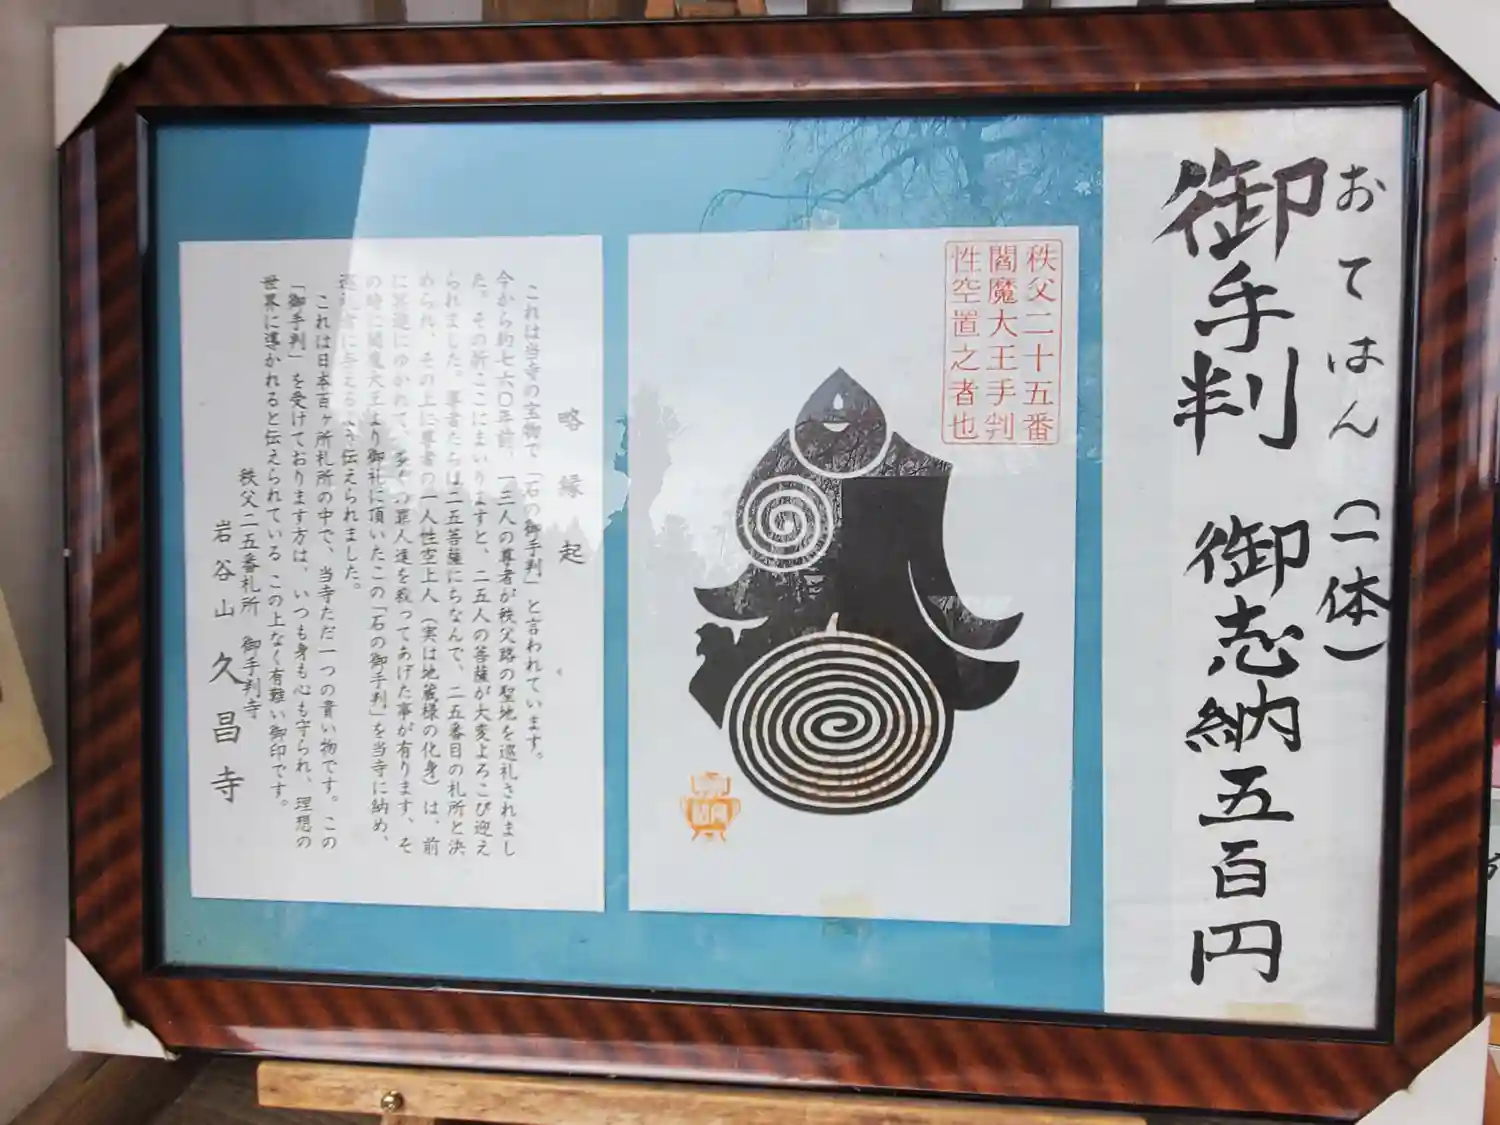 おてはん（一体）
御手判　御志納五百円
秩父二十五番
閻魔大王手判
性空置之者也
略縁起
これは当寺の宝物で「石の御手判」と言われています。
今から約七六〇年前、「三人の尊者が秩父路の聖地を巡礼されまし
た。その折ここにまいりますと、二五人の菩薩が大変よろこび迎え
られました。尊者たちは二五菩薩にちなんで、二五番目の札所と決
められ、その上に尊者の一人性空上人（実は地蔵様の化身）は、前
に冥途にゆかれて、多くの罪人達を救ってあげた事が有ります、そ
の時に閻魔大王より御礼に頂いたこの「石の御手判」を当寺に納め、
巡礼者に与えるべき伝えられました。
これは日本百ヶ所札所の中で、当寺ただ一つの貴い物です。この
「御手判」を受けております方は、いつも身も心も守られ、理想の
世界に導かれると伝えられている この上なく有難い御印です。
秩父二五番札所　御手判寺
岩谷山　久昌寺